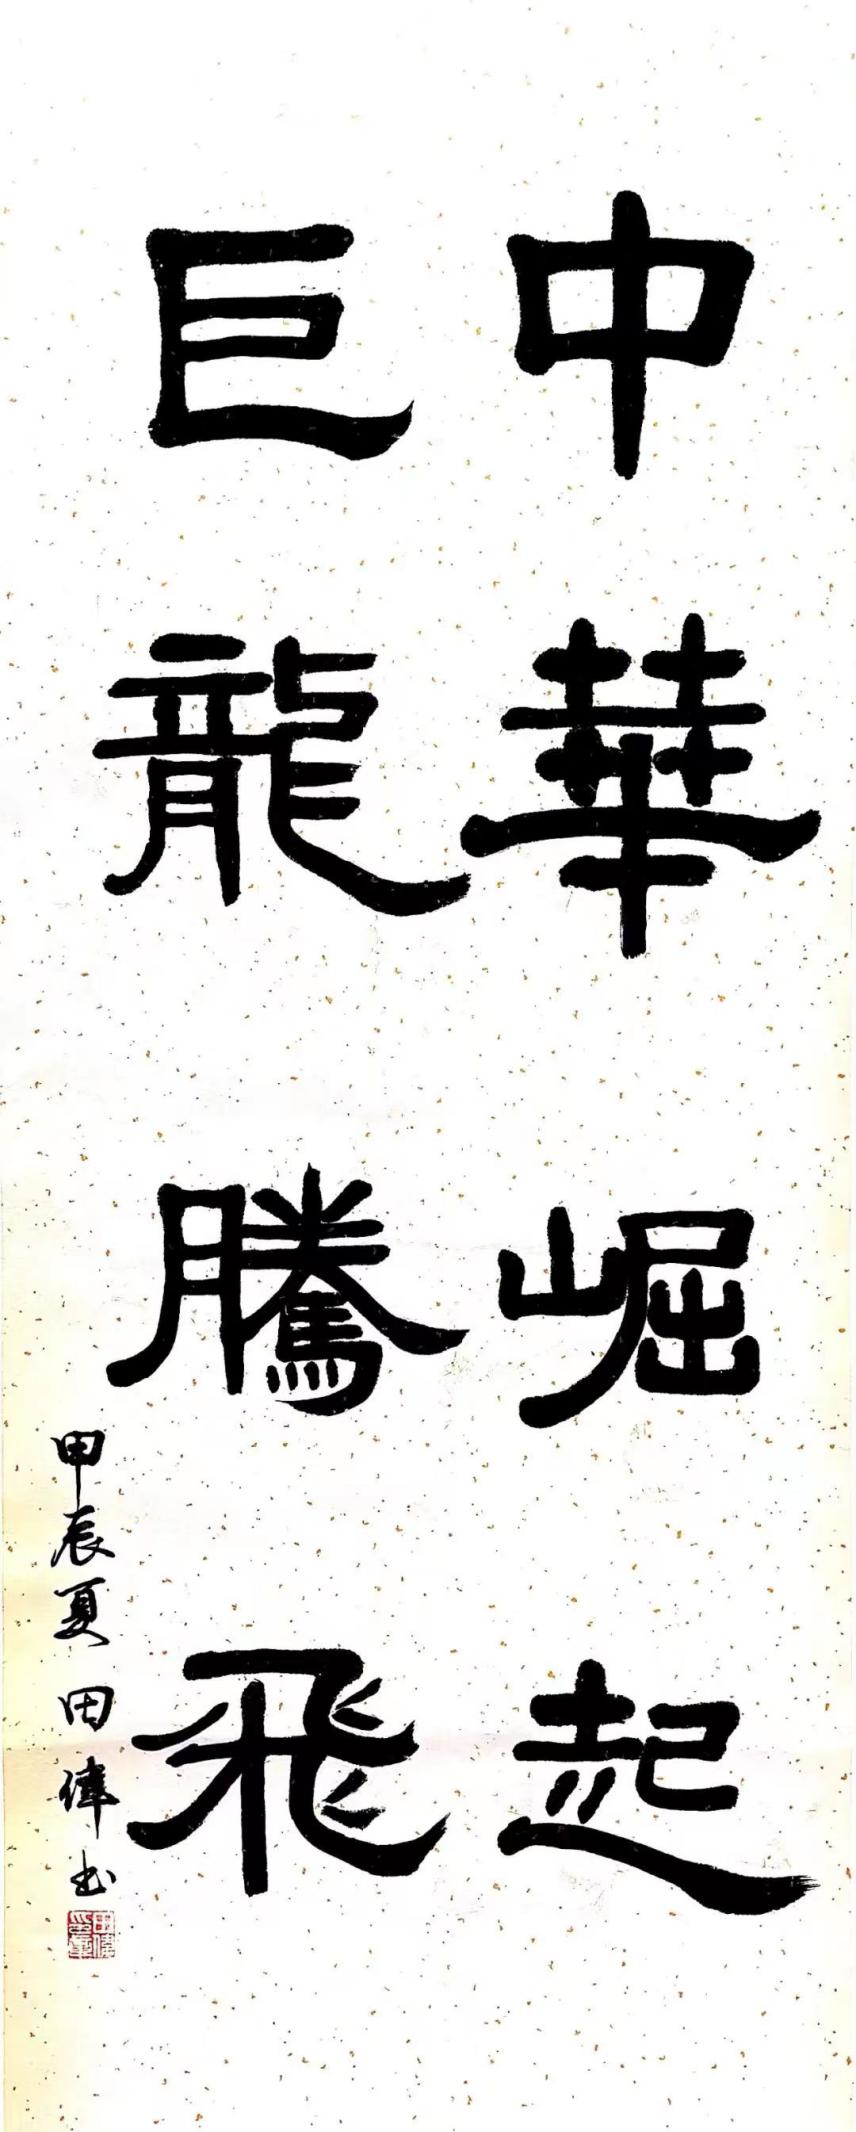 中華崛起
巨龍騰飛
甲辰夏 田偉书